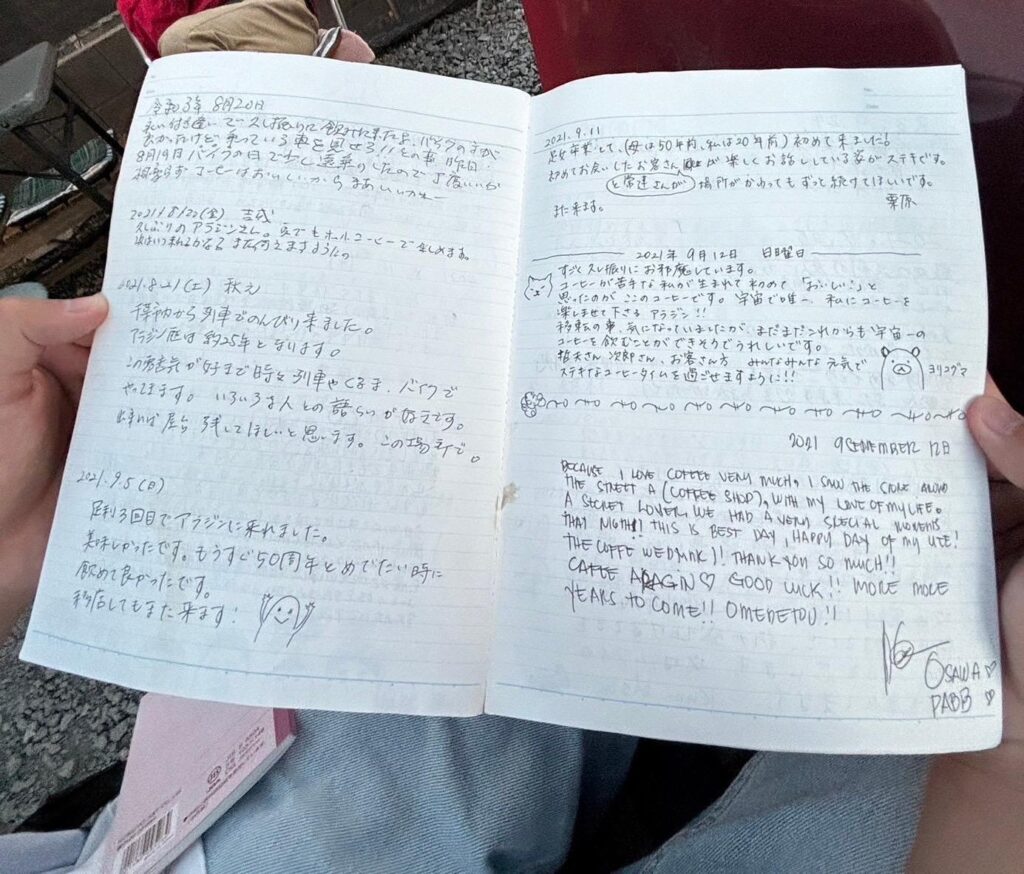 令和3年 8月20日
長い付き合いで久し振りに飲みに来たよ。バイクの方が
良かったけど 乗っている車を見せろ!!との事 昨日
8月19日バイクの日で少し遠乗りしたので丁度いいか
コーヒーはおいしいから まあいいかー
2021/8/20(金) 吉成
久しぶりのアラジンさん。夏でもホットコーヒーで楽しめます。
次はいつ来れるかな?
2021.8.21(土) 秋元
宇都宮から列車でのんびり来ました。
アラジン歴は約25年となります。
この雰囲気が好きで時々列車やくるま、バイクで
やって来ます。いろいろな人との語らいが好きです。
出来れば屋台 残してほしいと思います。この場所で。
2021.9.5(日)
足利3回目でアラジンに来れました。
美味しかったです。もうすぐ50周年とめでたい時に
飲めて良かったです。
移店してもまた来ます!
2021.9.11
足女卒業して、(母は50年前、私は20年前)初めて来ました!
初めてお会いしたお客さんが楽しくお話ししている姿がステキです。
と常連さんが
場所がかわってもずっと続けてほしいです。
また来ます。 栗原
2021年 9月12日 日曜日
すごく久し振りにお邪魔しています。
コーヒーが苦手な私が生まれて初めて「おいしい!」と
思ったのがここのコーヒーです。宇宙で唯一、私にコーヒーを
楽しませて下さる アラジン!!
移転の事、気になっていましたが、まだまだこれからも宇宙一の
コーヒーを飲むことができそうでうれしいです。
哲夫さん 次郎さん、お客さん方 みんなみんな元気で
ステキなコーヒータイムを過ごせますように!!
ヨリコグマ
2021 9SEPEMBER 12日
BECAUSE I LOVE COFFEE VERY MUCH, I SAW THE STORE ALONG
THE STREET A (COFFEE SHOP), WITH MY LOVE OF MY LIFE.
A SECRET LOVER, WE HAD A VERY SPECIAL MOMENTS
THAT NIGTH!! THIS IS BEST DAY, HAPPY DAY OF MY LIFE!
THE COFFE WE DRINK)! THANK YOU SO MUCH!!
CAFFE ARAGIN♡ GOOD LUCK!! MORE MORE
YEARS TO COME!! OMEDETOU!!
OSAWA♡
PABB ♡